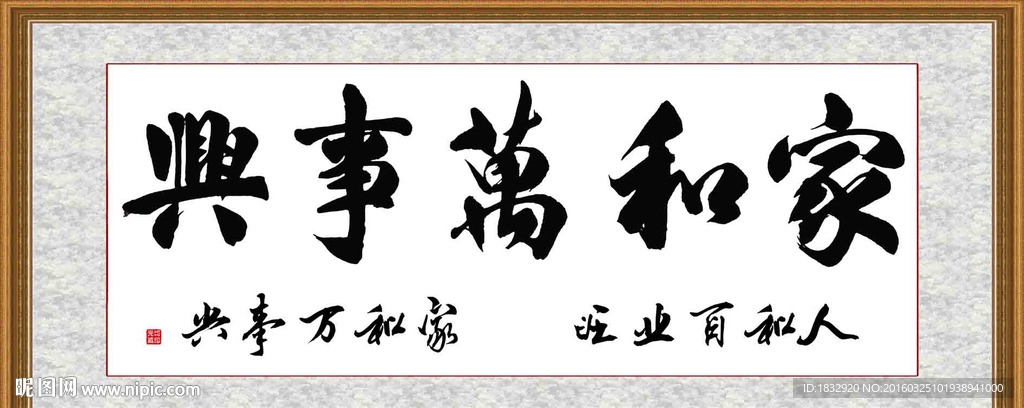 家和萬事興
人和百业旺 家和万事兴
昵图网 www.nipic.com
ID:1832920 NO:20160325101938941000